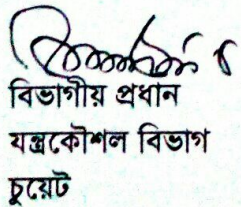 বিভাগীয় প্রধান
যন্ত্রকৌশল বিভাগ
চুয়েট